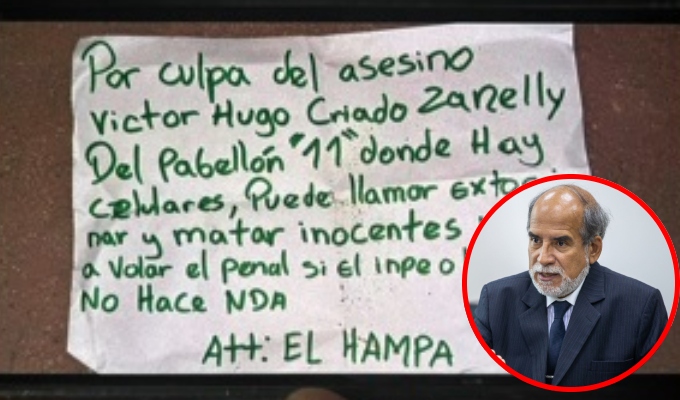 Por culpa del asesino
Victor Hugo Criado Zanelly
Del Pabellón "11" donde Hay
celulares, Puede llamar
nar y matar inocentes
a Volar el penal si El inpe o
No Hace NDA
Att: EL HAMPA